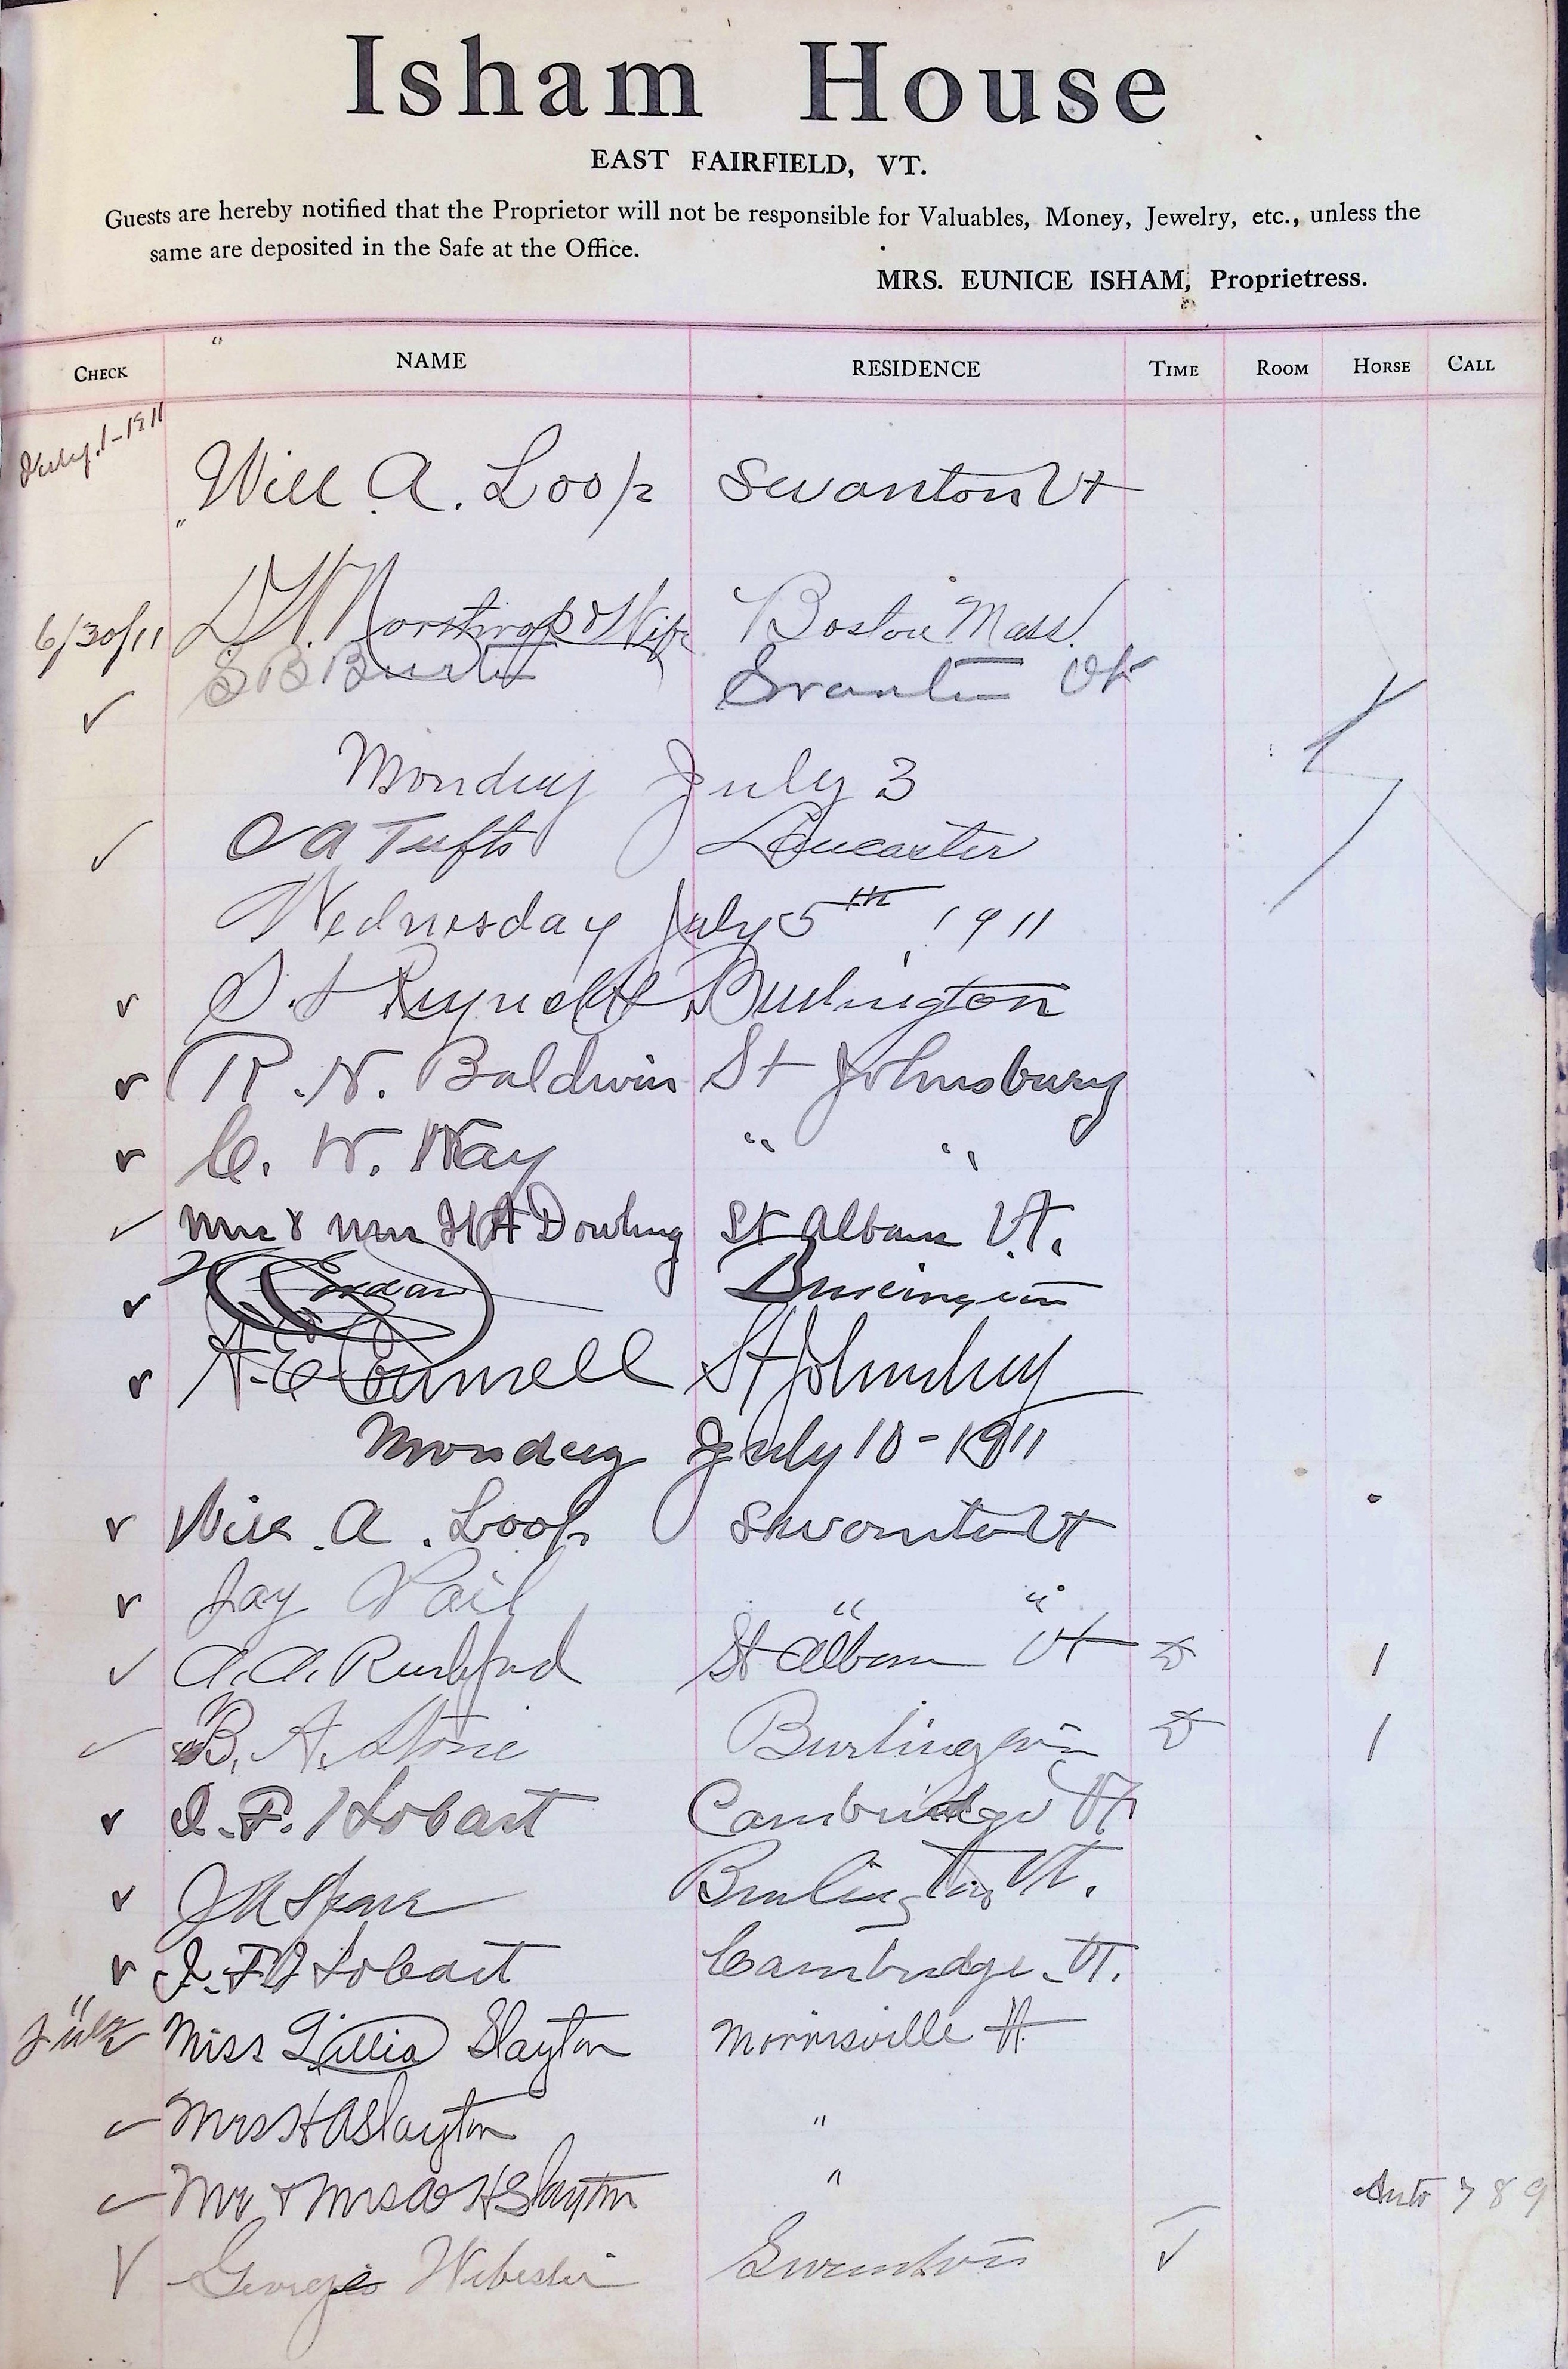 Isham House
EAST FAIRFIELD, VT.
Guests are hereby notified that the Proprietor will not be responsible for Valuables, Money, Jewelry, etc., unless the
same are deposited in the Safe at the Office.
MRS. EUNICE ISHAM, Proprietress.
CHECK NAME RESIDENCE TIME ROOM HORSE CALL
July. 1-1911 Will A. Loop Swanton Vt
6/30/11 D.W. Northrop & Wife Boston Mass.
S B Swanton Vt
Monday July 3
O A Tufts Lancaster
Wednesday July 5th 1911
Burlington
R. N. Baldwin St Johnsbury
C. W. Way " "
Mr & Mrs H A Dowling St Albans Vt.
Burlington
A. E. Connell St Johnsbury
Monday July 10-1911
Will A. Loop Swanton Vt
Jay Vail " "
A. A. Rushford St Albans Vt 1
B. A. Stone Burlington 1
I. F. Hobart Cambridge Vt
J M Spear Burlington Vt.
I. F. Hobart Cambridge Vt.
July 11 Miss Lillia Slayton Morrisville Vt
Mrs H A Slayton "
Mr & Mrs H Slayton " Auto 789
George Webster Swanton